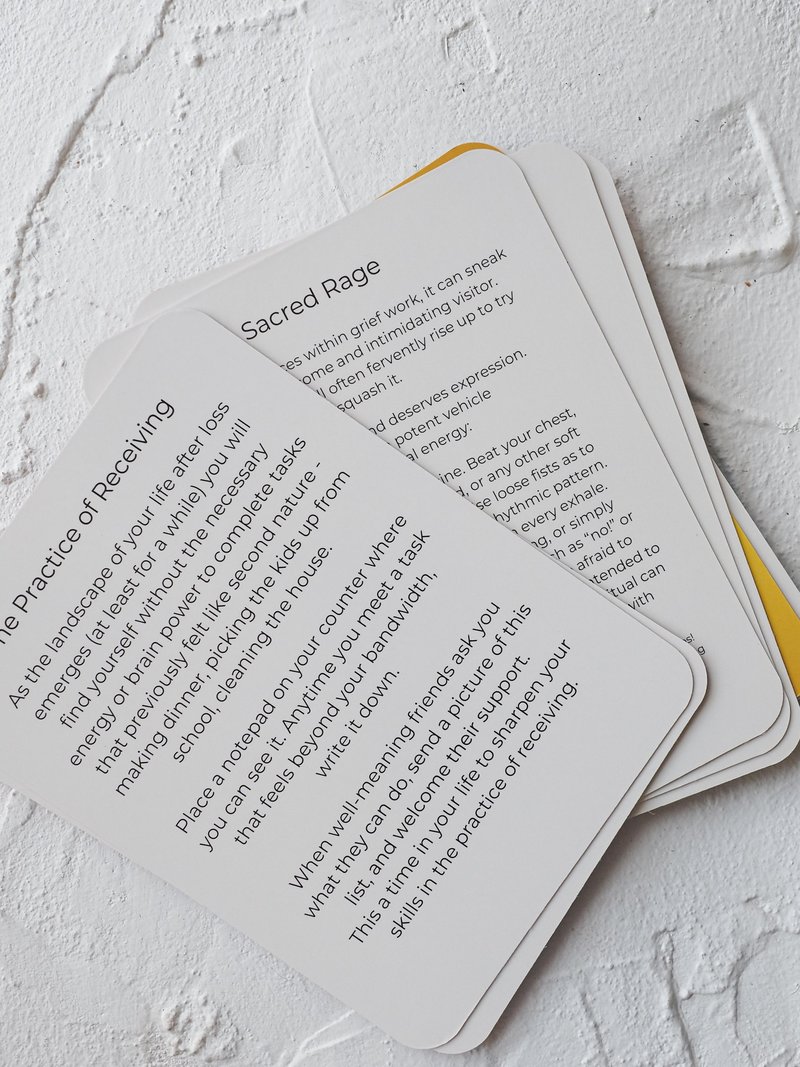 he Practice of Receiving
As the landscape of your life after loss
emerges (at least for a while) you will
find yourself without the necessary
energy or brain power to complete tasks
that previously felt like second nature -
making dinner, picking the kids up from
school, cleaning the house.
Place a notepad on your counter where
you can see it. Anytime you meet a task
that feels beyond your bandwidth,
write it down.
When well-meaning friends ask you
what they can do, send a picture of this
list, and welcome their support.
This a time in your life to sharpen your
skills in the practice of receiving.
Sacred Rage
ces within grief work, it can sneak
ome and intimidating visitor.
often fervently rise up to try
squash it.
nd deserves expression.
potent vehicle
al energy:
ine. Beat your chest,
or any other soft
se loose fists as to
hythmic pattern.
every exhale.
ng, or simply
ch as "no!" or
afraid to
ntended to
itual can
with